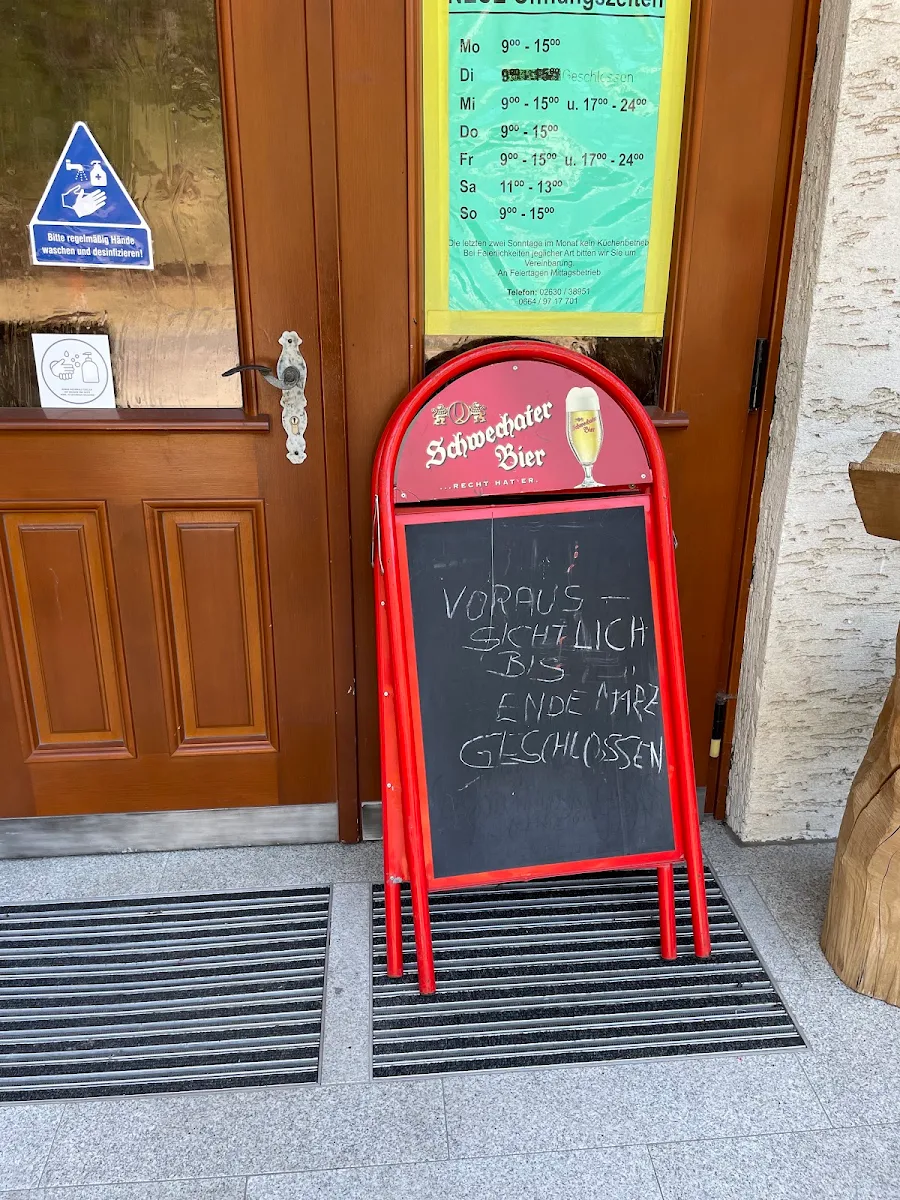 NEUE Öffnungszeiten
Mo 9⁰⁰ - 15⁰⁰
Di Geschlossen
Mi 9⁰⁰ - 15⁰⁰ u. 17⁰⁰ - 24⁰⁰
Do 9⁰⁰ - 15⁰⁰
Fr 9⁰⁰ - 15⁰⁰ u. 17⁰⁰ - 24⁰⁰
Sa 11⁰⁰ - 13⁰⁰
So 9⁰⁰ - 15⁰⁰
Die letzten zwei Sonntage im Monat kein Küchenbetrieb
Bei Feierlichkeiten jeglicher Art bitten wir Sie um
Vereinbarung.
An Feiertagen Mittagsbetrieb
Telefon: 02630 / 38951
0664 / 97 17 701
Bitte regelmäßig Hände
waschen und desinfizieren!
Schwechater
Bier
...RECHT HAT ER.
Schwechater
Bier
VORAUS-
SICHTLICH
BIS
ENDE MÄRZ
GESCHLOSSEN